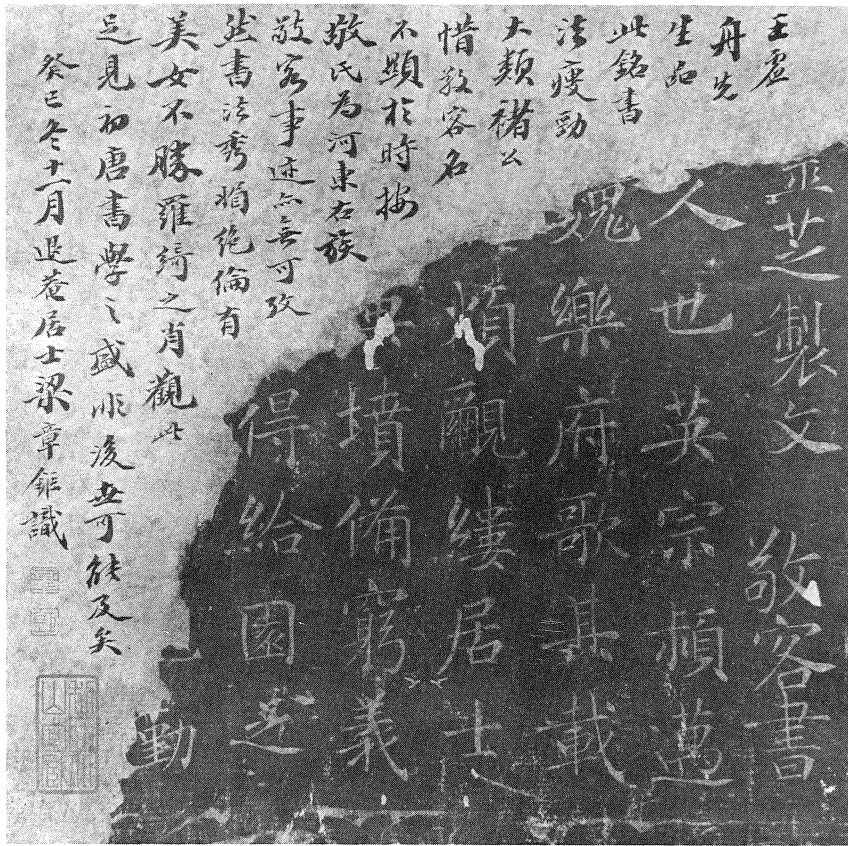 芝製文 敬客書
人也英宗穎邁
樂府歌其載
覼縷居士
典墳備窮義
得給園之
勤
王虛
舟先
生品
此銘書
法瘦勁
大類褚公
惜敬客名
不顯於時按
敬氏為河東右族
敬客事迹亦無可攷
然書法秀娟絕倫有
美女不勝羅綺之肖觀此
足見初唐書學之盛非後世所能及矣
癸巳冬十一月退菴居士梁章鉅識